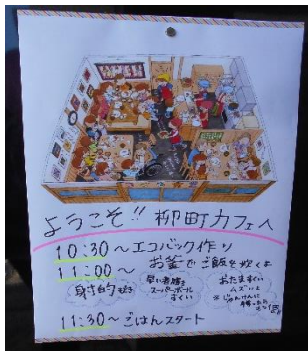 ようこそ!! 柳町カフェへ
10:30〜エコバック作り
11:00〜お釜でご飯を炊くよ
早い者勝ち
スーパーボール
すくい
おたますくい
11:30〜ごはんスタート